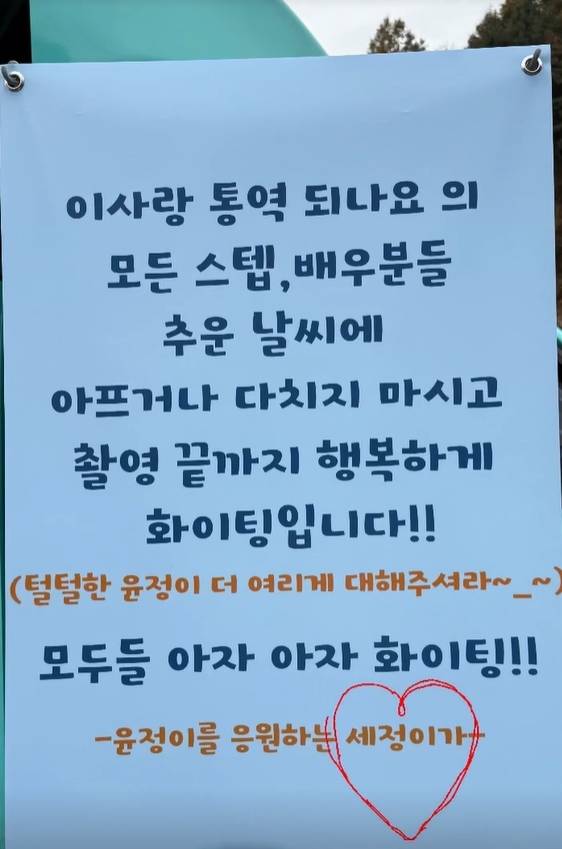 이사랑 통역 되나요 의
모든 스텝,배우분들
추운 날씨에
아프거나 다치지 마시고
촬영 끝까지 행복하게
화이팅입니다!!
(털털한 윤정이 더 여리게 대해주셔라~_~)
모두들 아자 아자 화이팅!!
-윤정이를 응원하는 세정이가-